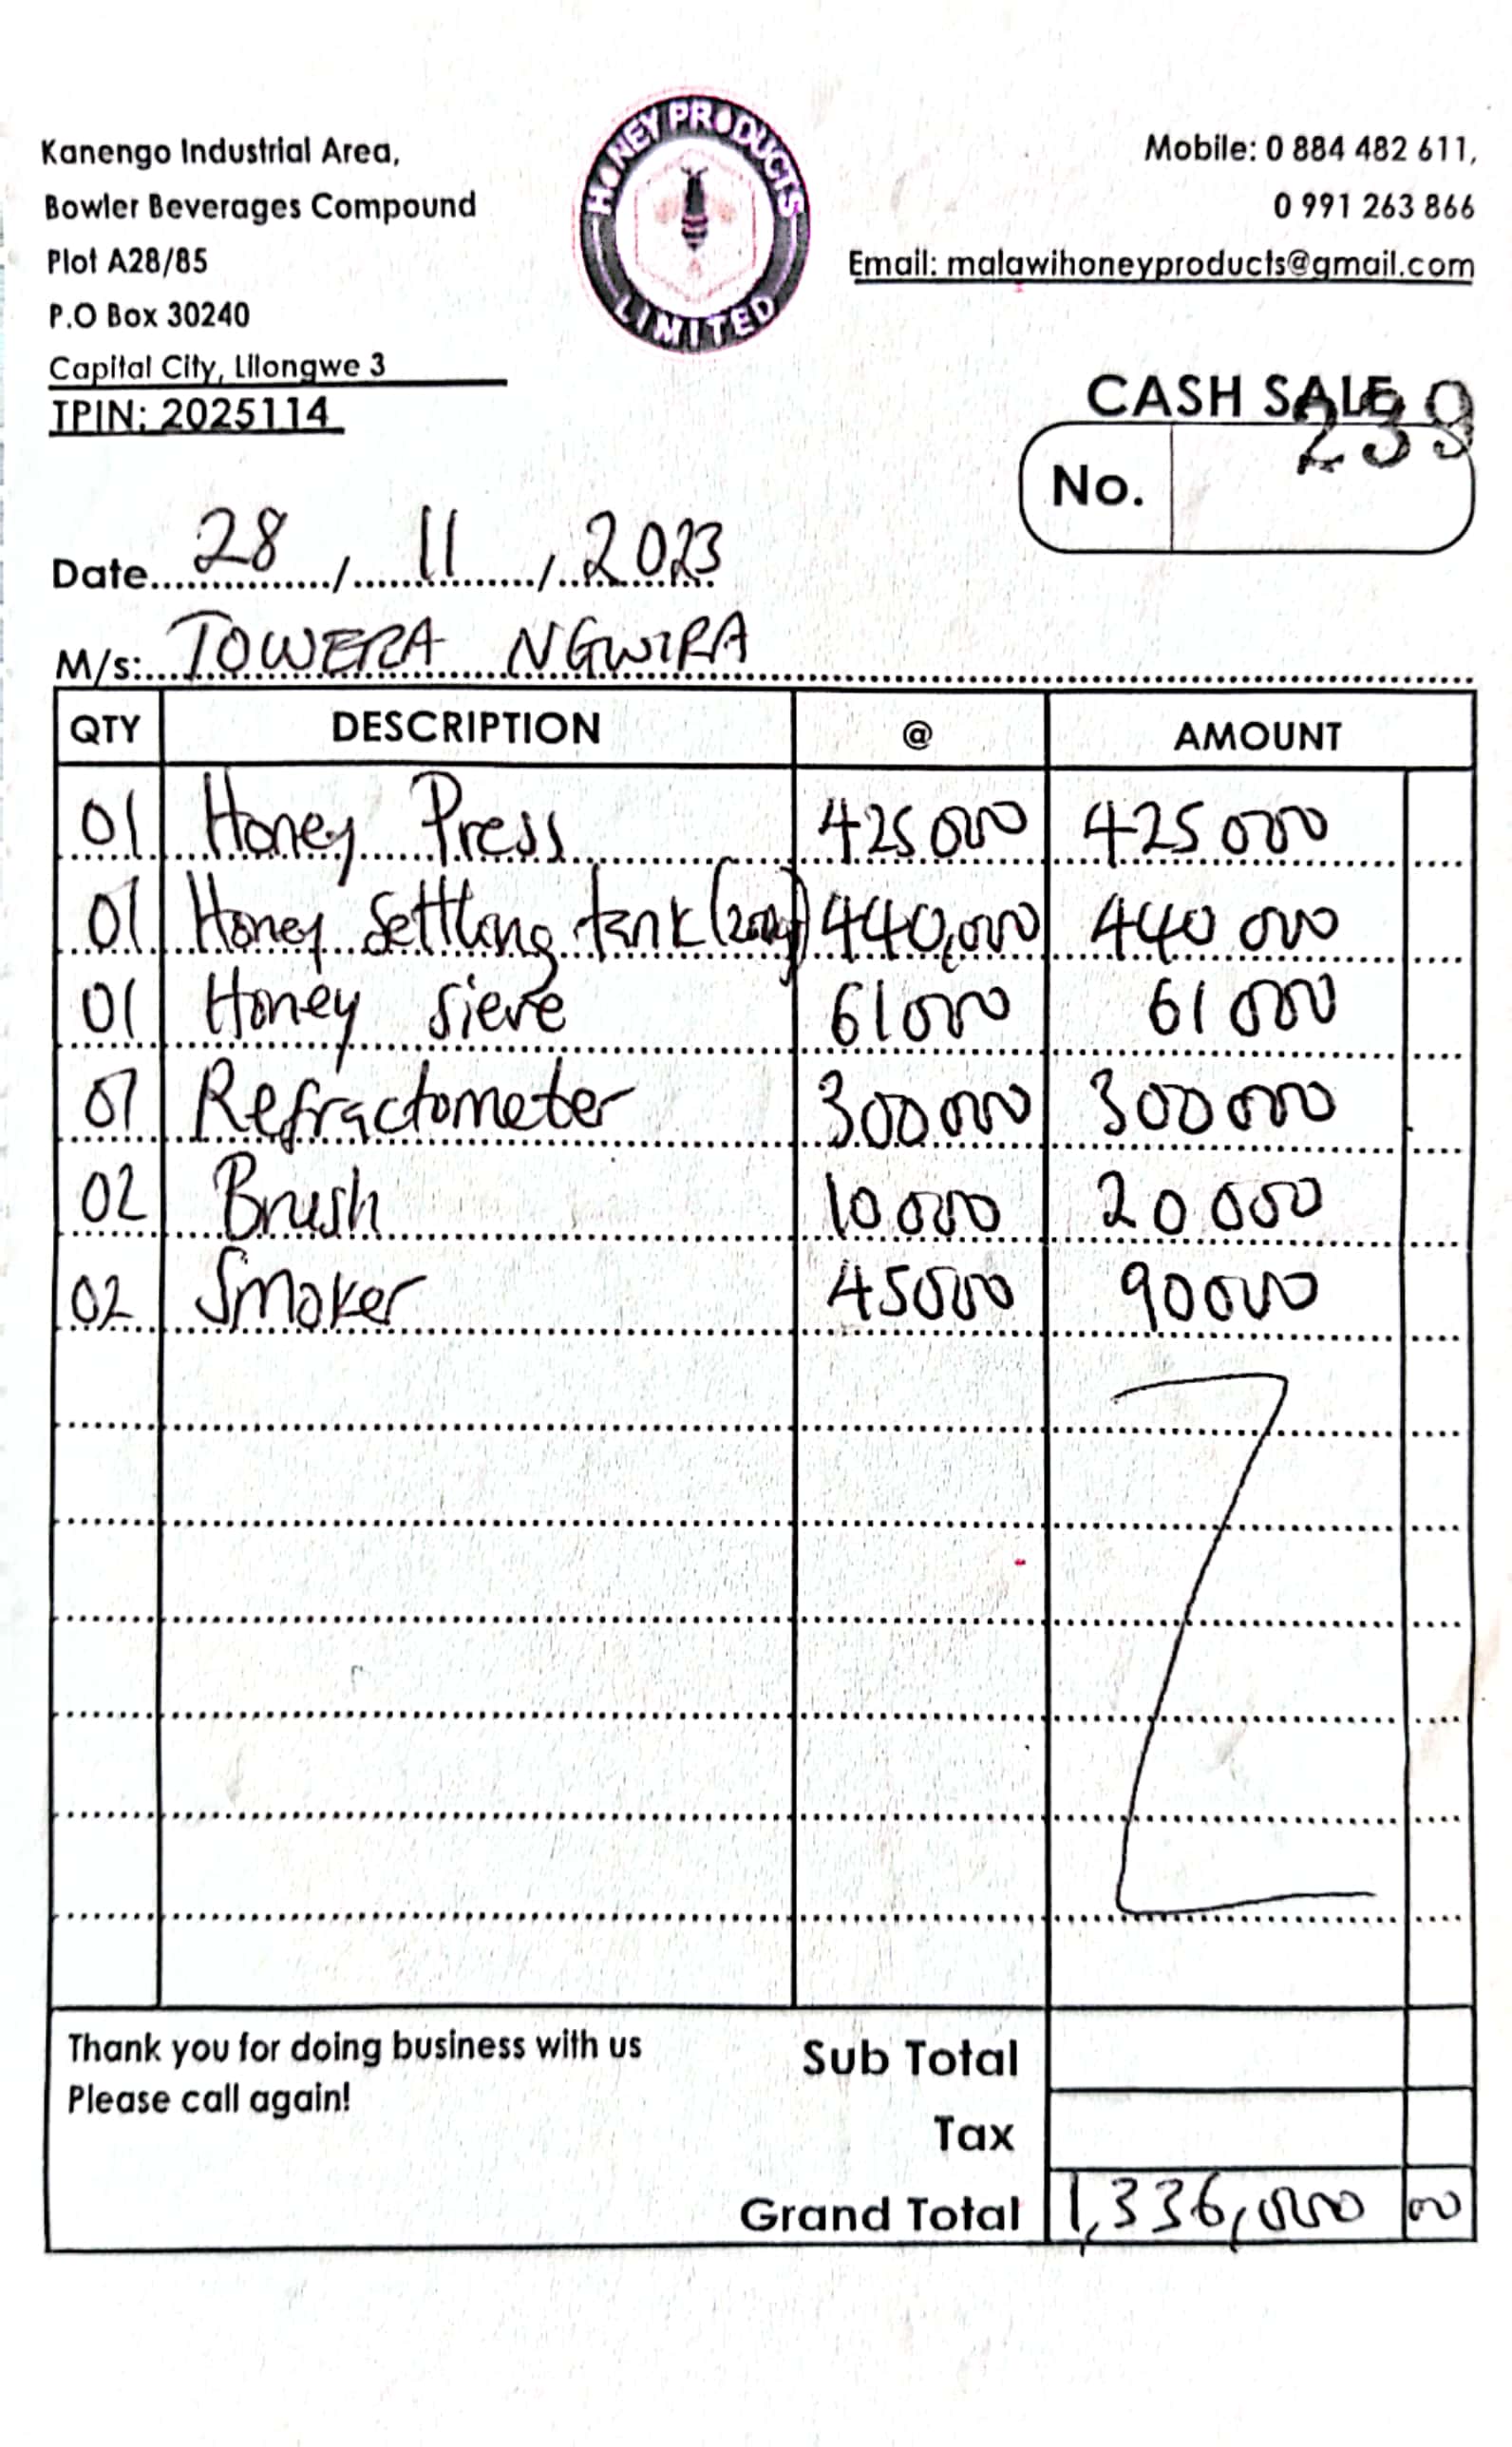 Kanengo Industrial Area,
Bowler Beverages Compound
Plot A28/85
P.O Box 30240
Capital City, Lilongwe 3
TPIN: 2025114
HONEY PRODUCTS
LIMITED
Mobile: 0 884 482 611,
0 991 263 866
Email: malawihoneyproducts@gmail.com
CASH SALE
No. 239
Date 28 / 11 / 2023
M/s: TOWERA NGWIRA
QTY DESCRIPTION @ AMOUNT
01 Honey Press 425000 425000
01 Honey settling tank 440,000 440 000
01 Honey sieve 61000 61 000
01 Refractometer 300000 300000
02 Brush 10000 20000
02 Smoker 45000 90000
Thank you for doing business with us
Please call again!
Sub Total
Tax
Grand Total 1,336,000 00